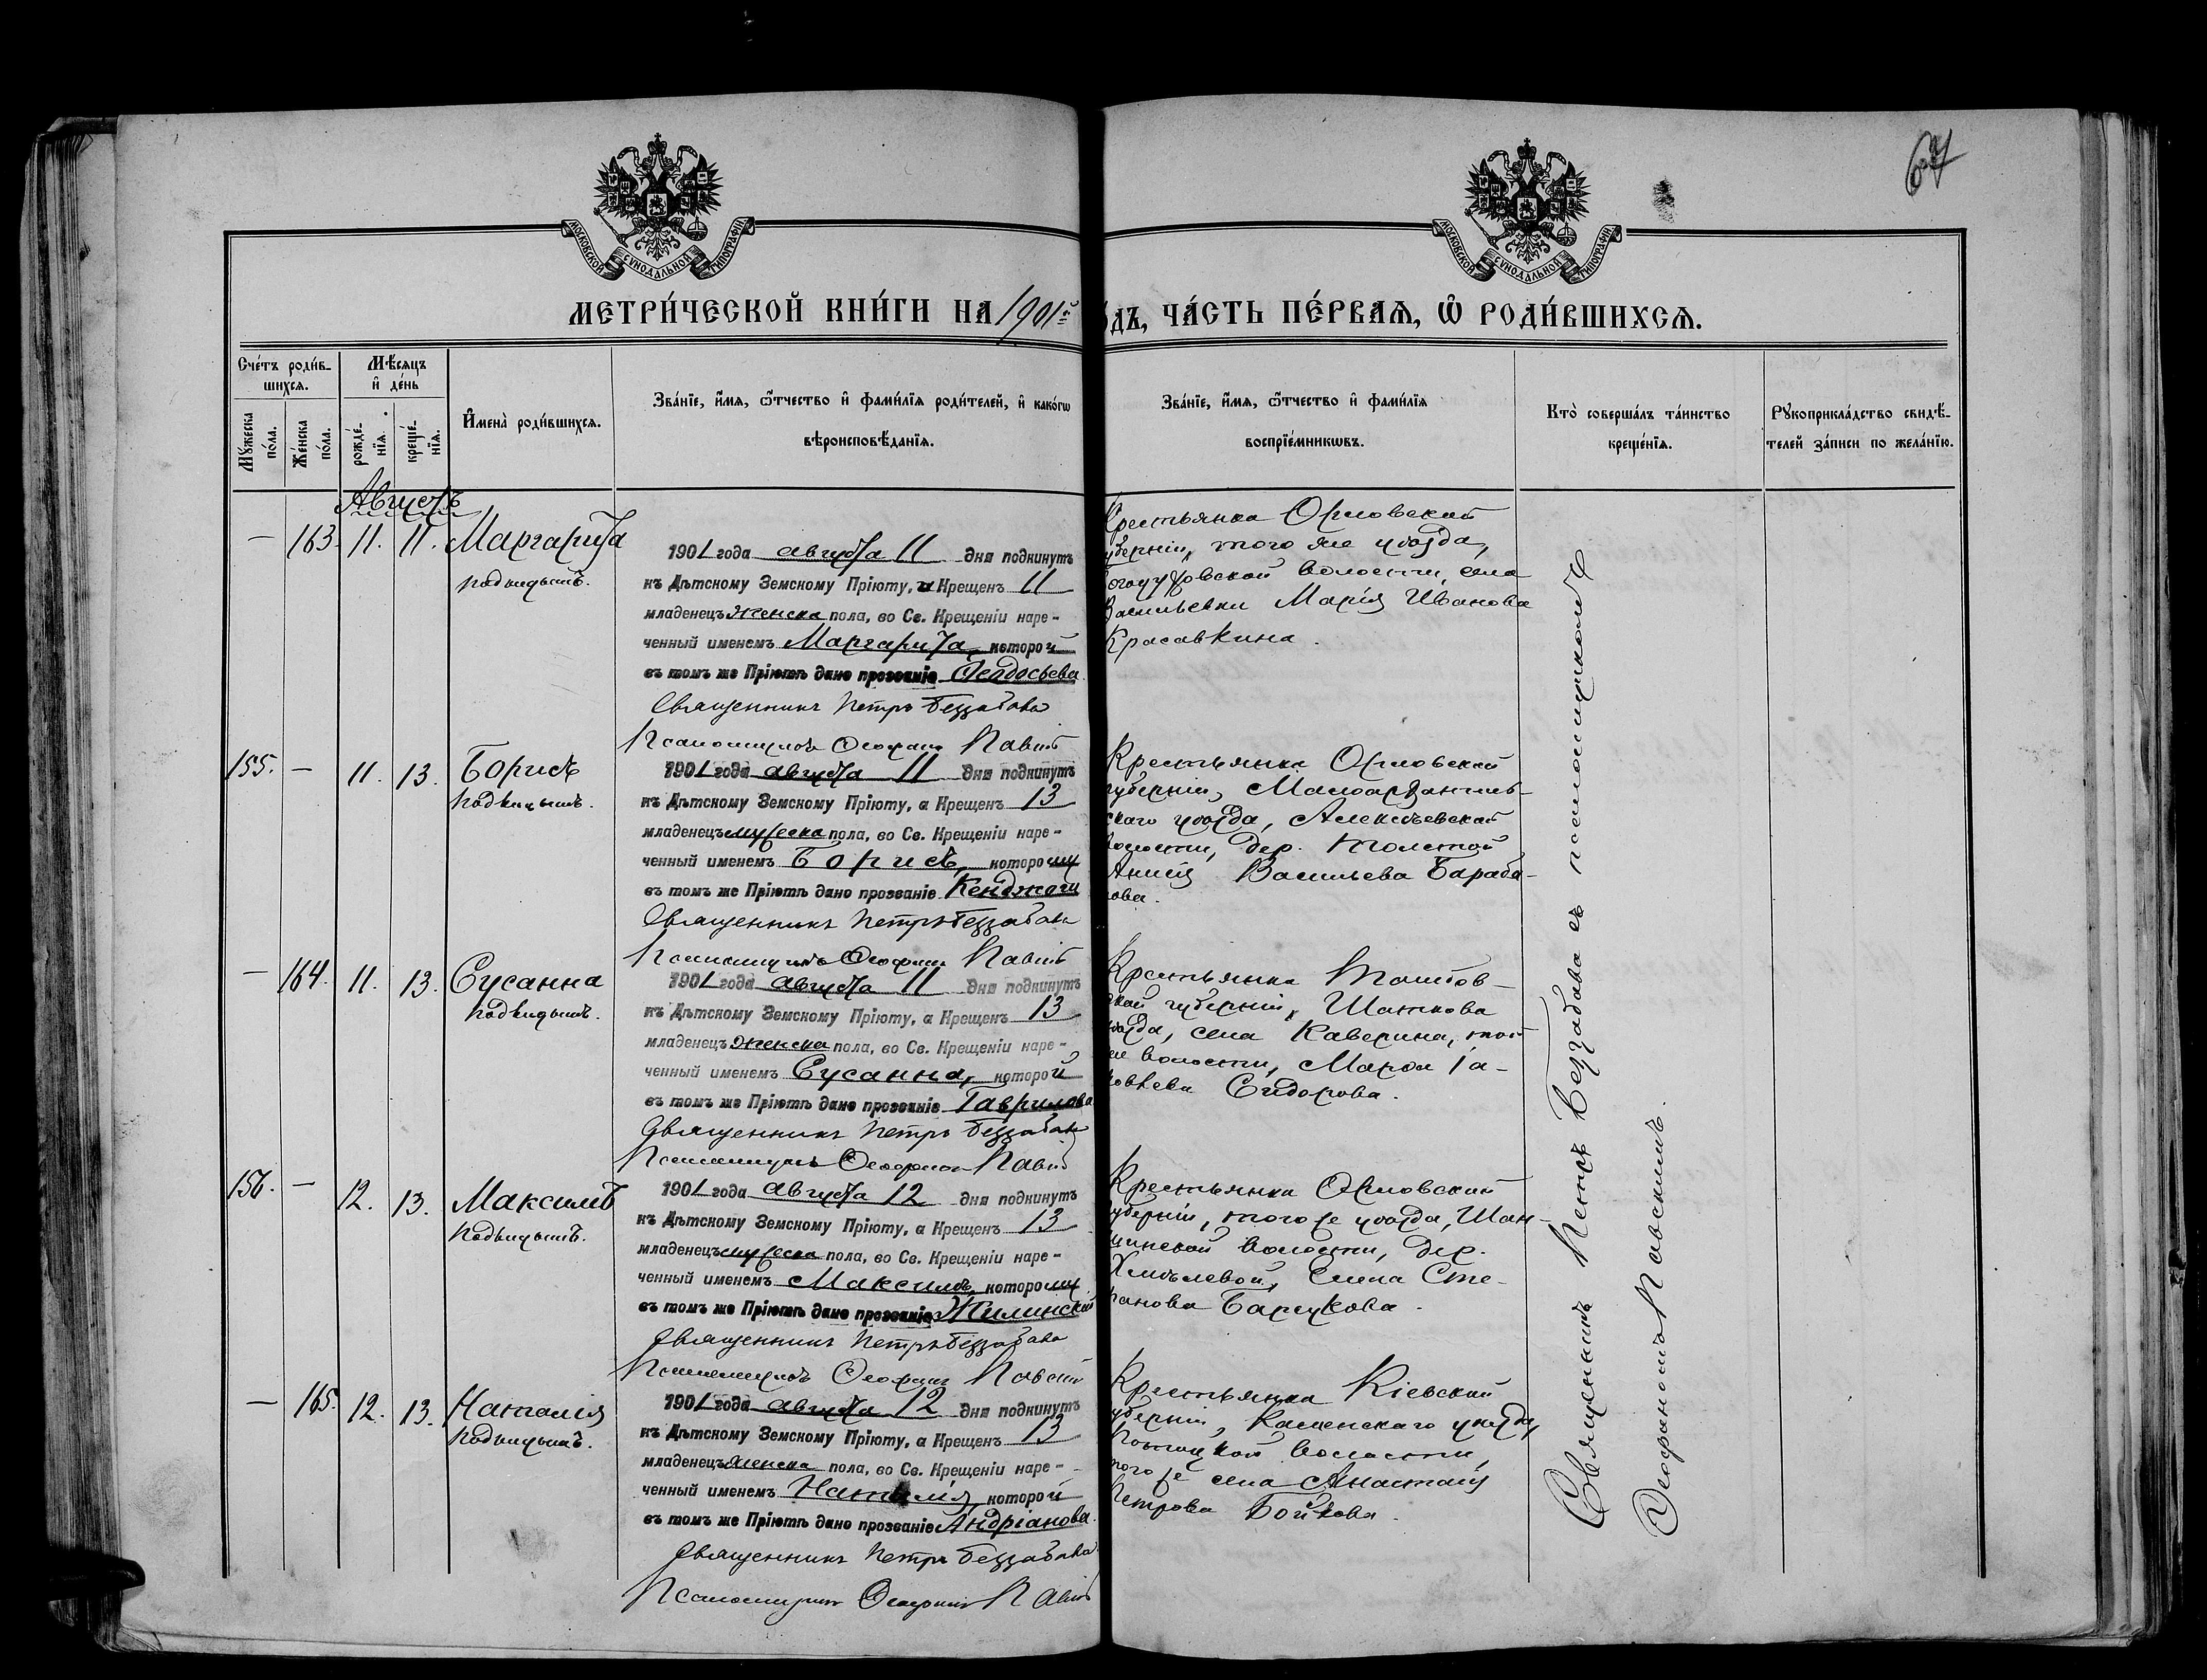 67
МОСКОВСКОЙ СѴНОДАЛЬНОЙ ТИПОГРАФІИ
МОСКОВСКОЙ СѴНОДАЛЬНОЙ ТИПОГРАФІИ
МЕТРИ́ЧЕСКОЙ КНИ́ГИ НА 1901й
ОДЪ, ЧА́СТЬ ПЕ́РВАѦ, Ѡ҆ РОДИ́ВШИХСѦ.
Сче́тъ роди́в-
шихсѧ.
Мꙋ́жеска по́ла.
Же́нска по́ла.
Мѣ́сѧцъ
и҆ де́нь
рожде́-
нїѧ.
креще́-
нїѧ.
И҆мена̀ роди́вшихсѧ.
Зва́нїе, и҆́мѧ, ѻ҆́тчество и҆ фами́лїѧ роди́телей, и҆ како́гѡ
вѣроисповѣ́данїѧ.
Зва́нїе, и҆́мѧ, ѻ҆́тчество и҆ фами́лїѧ
воспрїе́мникѡвъ.
Кто̀ соверша́лъ та́инство
креще́нїѧ.
Рꙋкоприкла́дство свидѣ́-
телей за́писи по жела́нїю.
Августъ
— 163. 11. 11. Маргарита
подкидышъ.
1901 года августа 11 дня подкинутъ
къ Дѣтскому Земскому Пріюту, а Крещенъ 11
младенецъ женска пола, во Св. Крещеніи наре-
ченный именемъ Маргарита, которой
въ томъ же Пріютѣ дано прозваніе Феодосьева.
Священникъ Петръ Беззабава
Псаломщикъ Феофанъ
Крестьянка Орловской
губерніи, того же уѣзда,
волости, села
Васильевки Марія Иванова
Красавкина.
155. — 11. 13. Борисъ
подкидышъ.
1901 года августа 11 дня подкинутъ
къ Дѣтскому Земскому Пріюту, а Крещенъ 13
младенецъ мужеска пола, во Св. Крещеніи наре-
ченный именемъ Борисъ, которому
въ томъ же Пріютѣ дано прозваніе
Священникъ Петръ Беззабава
Псаломщикъ Феофанъ
Крестьянка Орловской
губерніи, Малоархангель-
скаго уѣзда, Алексѣевской
волости, дер. Толстой
Васильева Бараба-
нова.
— 164. 11. 13. Сусанна
подкидышъ.
1901 года августа 11 дня подкинутъ
къ Дѣтскому Земскому Пріюту, а Крещенъ 13
младенецъ женска пола, во Св. Крещеніи наре-
ченный именемъ Сусанна, которой
въ томъ же Пріютѣ дано прозваніе Гаврилова
Священникъ Петръ Беззабава
Псаломщикъ Феофанъ
Крестьянка Тамбов-
ской губерніи, Шаткова
уѣзда, села Каверина, той
же волости, Марфа
Сидорова.
156. — 12. 13. Максимъ
подкидышъ.
1901 года августа 12 дня подкинутъ
къ Дѣтскому Земскому Пріюту, а Крещенъ 13
младенецъ мужеска пола, во Св. Крещеніи наре-
ченный именемъ Максимъ, которому
въ томъ же Пріютѣ дано прозваніе Жилинскій
Священникъ Петръ Беззабава
Псаломщикъ Феофанъ
Крестьянка Орловской
губерніи, того же уѣзда,
волости, дер.
Хмѣлевой, Елена Сте-
фанова Барсукова.
— 165. 12. 13. Наталія
подкидышъ.
1901 года августа 12 дня подкинутъ
къ Дѣтскому Земскому Пріюту, а Крещенъ 13
младенецъ женска пола, во Св. Крещеніи наре-
ченный именемъ Наталія, которой
въ томъ же Пріютѣ дано прозваніе Андріанова.
Священникъ Петръ Беззабава
Псаломщикъ Феофанъ
Крестьянка Кіевской
губерніи, уѣзда,
волости,
того же села Анастасія
Петрова Бойкова.
Священникъ Петръ Беззабава съ псаломщикомъ
Феофаномъ Павскимъ.